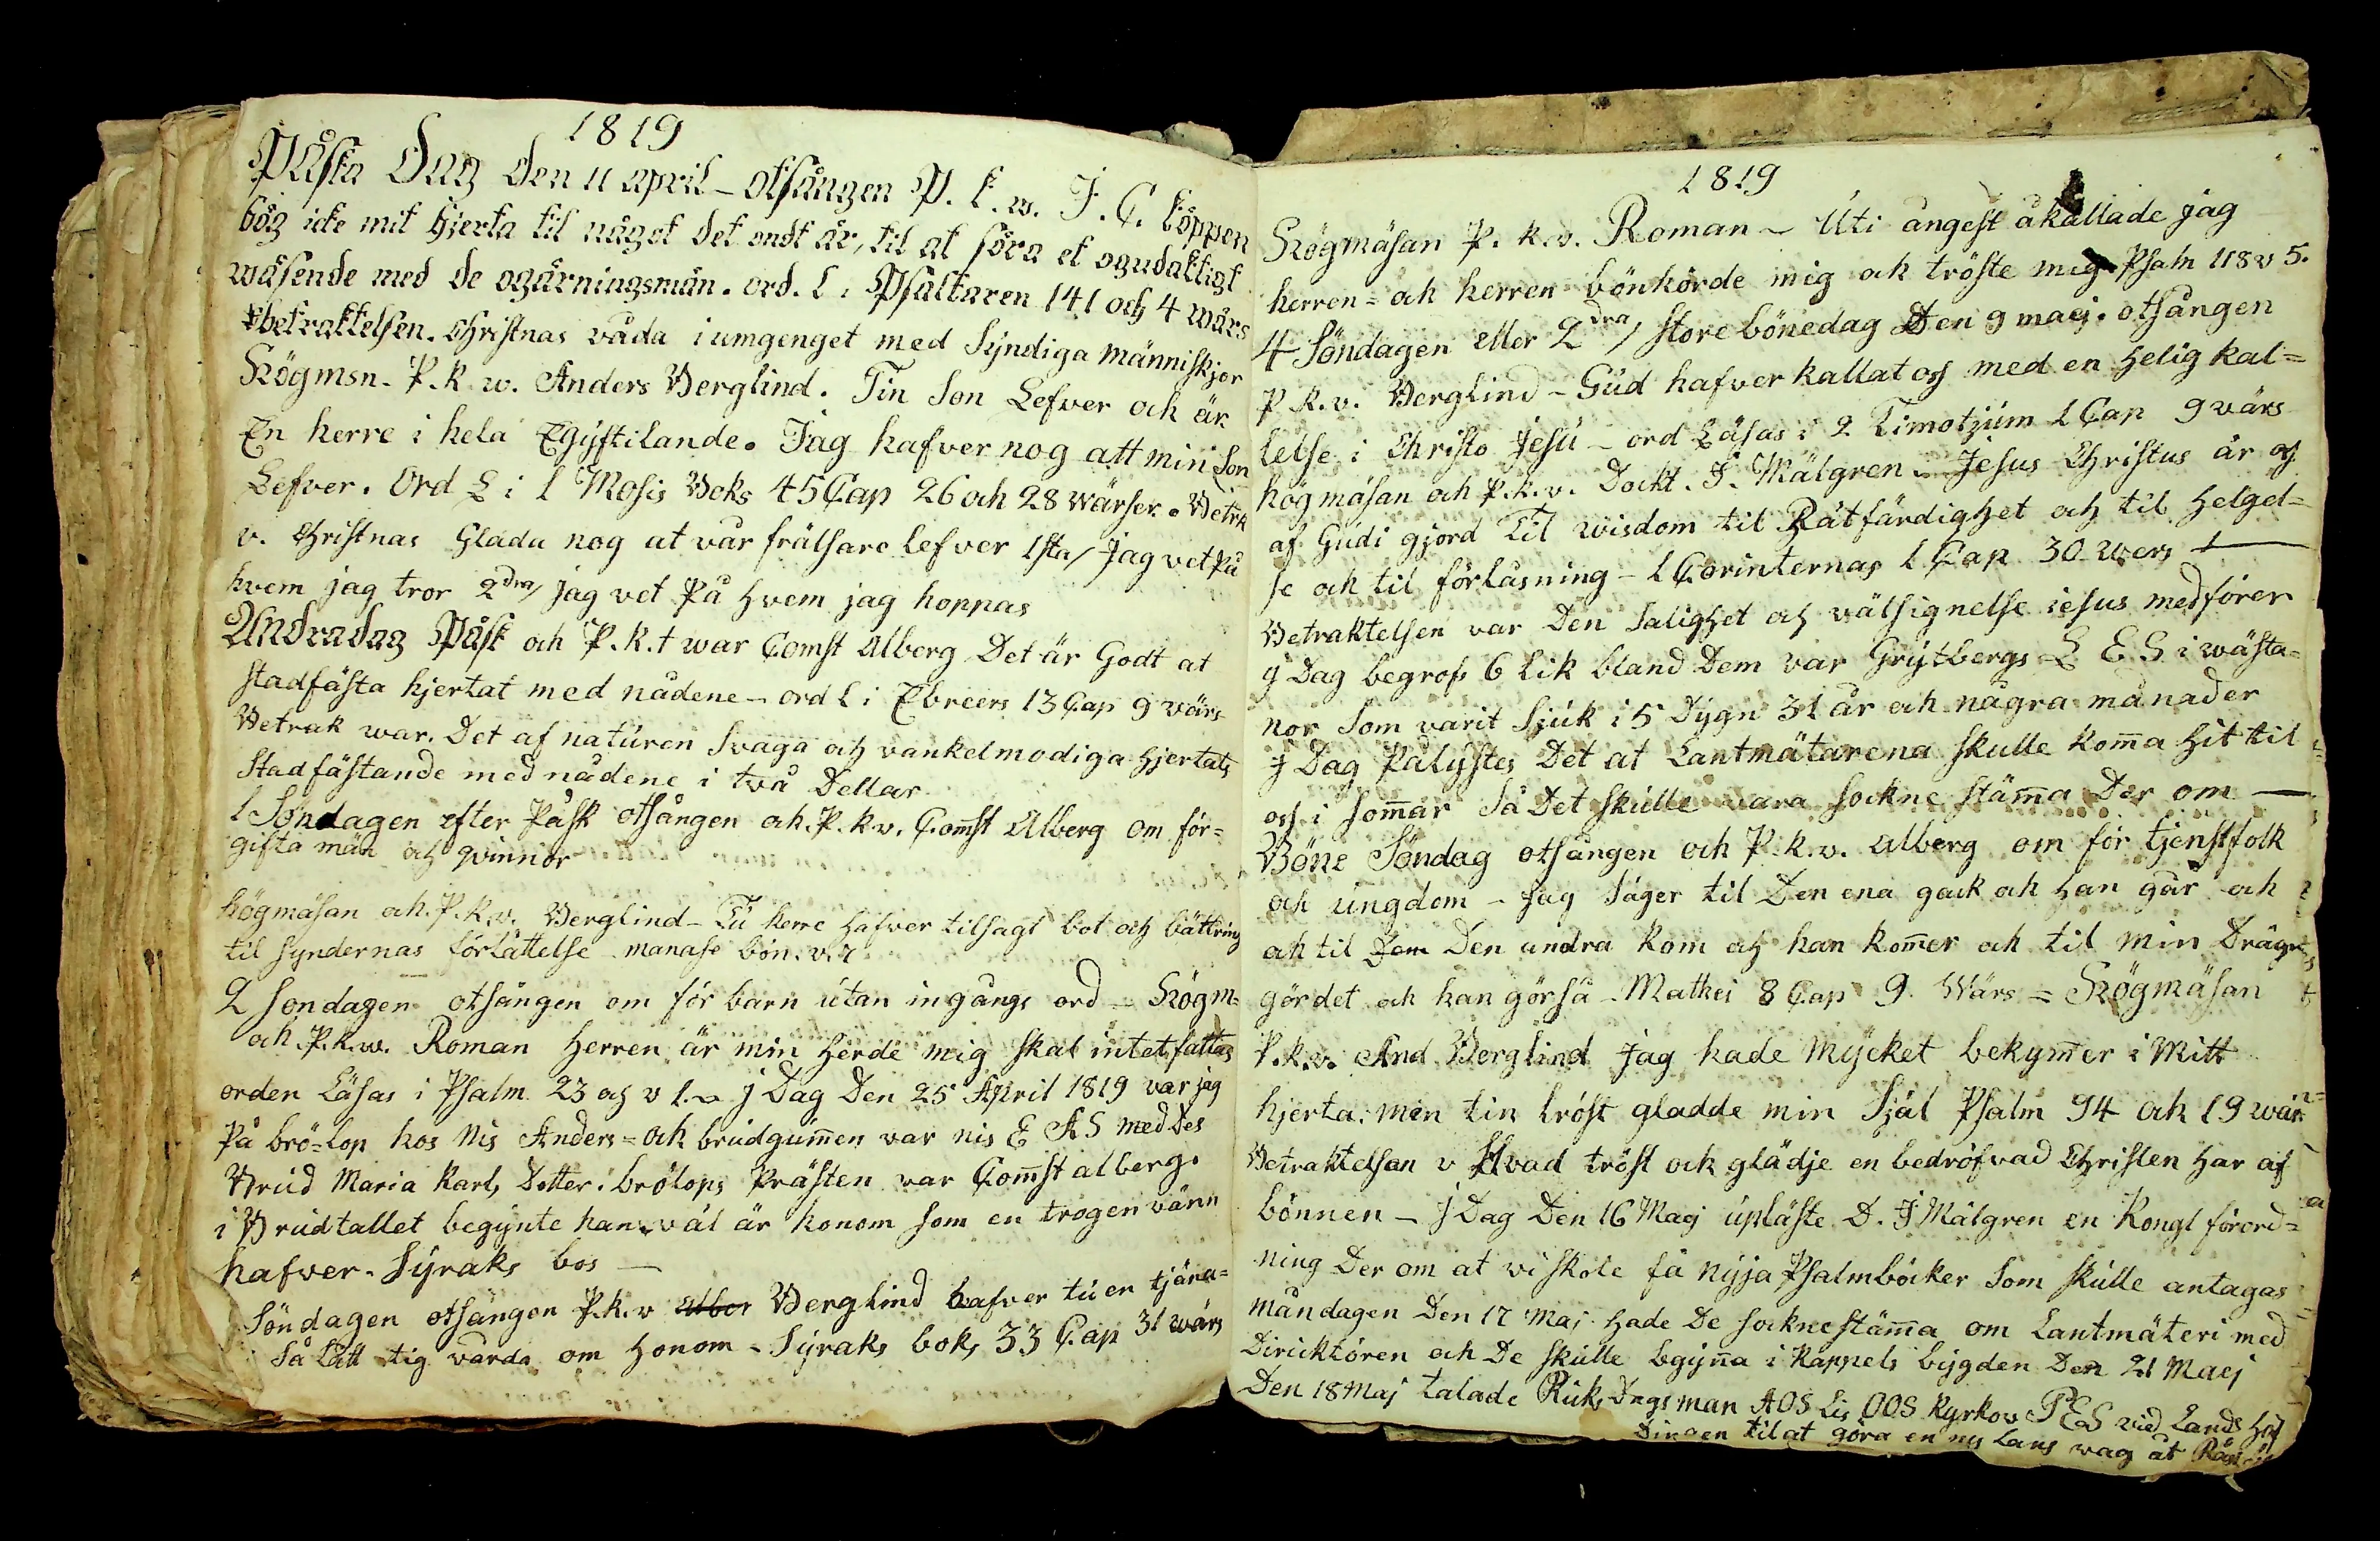 1819
Påska Dag Den 11 april - otsången P. k. w. J. C. köppen
bög icke mit hjerta til något det ondt är, til at föra et ogudaktigt
wäsende med de ogärningsmän. ord. l. i Psaltaren 141 och 4 wärs
betraktelsen. Christnas våda i umgenget med Syndiga människjor
Högmsn. P. k. w. Anders Berglind. Tin Son Lefver och är
En herre i hela Egyftilande. Jag hafver nog att min Son
Lefver. Ord L i 1 Mosis Boks 45 Cap 26 och 28 wärser. Betrk
v. Christnas Glada nog at vår frälsare lefver 1sta/ Jag vet på
hvem jag tror 2dra/ jag vet på hvem jag hoppas
Andradag Påsk och P. k. t war Comst Alberg Det är Godt at
stadfästa hjertat med nådene - ord l i Ebreers 13 Cap 9 värs
Betrak war. Det af naturen Svaga och vankelmodiga hjertats
Stadfästande med nådene i två Dellar
1 Söndagen efter Påsk otsången och. P. k. v. Comst Alberg om för=
gifta män och qvinnor
högmäsan och. P. k. v. Berglind - Tu herre hafver tilsagt bot och bättring
til syndernas förlåttelse manase bön. v. 7
2 söndagen otsången om för barn utan ingångs ord - Högm=
och. P. k. w. Roman Herren är min Herde mig skal intet fattas
orden Läsas i Psalm 23 och v 1. - j Dag Den 25 April 1819 var jag
På brö=lop hos Nis Anders = och brudgummen var nis E A S med Des
Brud Maria Karls Dotter i brölops Prästen var Comst alberg.
i Brudtallet begynte han - väl är honom som en trogen vänn
hafver. Syraks bos —
Söndagen otsången P. k. v Alber Berglind hafver tu en tjäna=
Så Lått tig vårda om honom - Syraks boks 33 Cap 31 wärs
1819
Högmäsan P. k. v. Roman - Uti angest åkallade jag
herren = och herren bönhörde mig och tröste mig Psalm 118 v 5.
4 Söndagen eller 2dra/ store bönedag Den 9 maij. otsången
P k. v. Berglind - Gud hafver kallat oss med en helig kal=
lelse i Christo Jesu - ord Läsas i 2 Timotjum 1 Cap 9 värs
högmäsan och P. k. v. Dockt. J. Mälgren - Jesus Christus är oss
af Gudi gjord Til wisdom til Rätfärdighet och til helgel=
se och til förlåsning - 1 Corinternas 1 Cap 30 wers —
Betraktelsen var Den Salighet och wälsignelse iesus medförer
j Dag begrofs 6 lik bland Dem var Grytbergs L E S i wästa=
nor Som varit Sjuk i 5 Dygn 31 år och några månader
j Dag Pålystes Det at Lantmätarena skulle koma hit til
oss i somar Så Det skulle vara sockne stäma Der om —
Böne Söndag otsången och P. k. v. alberg om för tjenstfolk
och ungdom - jag säger til Den ena gack och han går och
och til Dem Den andra kom och han komer och til min Dräng
gör det och han gör så - Mathei 8 Cap 9. Wärs = Högmäsan
P. k. v. And. Berglind jag hade mycket bekymer i Mitt
hjerta: men tin tröst gladde min Själ Psalm 94 och 19 wärs
Betraktelsan v Hvad tröst och glädje en bedröfvad Christen har af
bönnen - j Dag Den 16 Maij upläste D. J Mälgren en Kongl förord=
ning Der om at vi skole få nyja Psalmböcker som skulle antagas
måndagen Den 17 Maj hade De socknestäma om Lantmäteri med
Direcktören och De skulle bgyna i Kappels bygden Den 21 Maij
Den 18 Maj talade Riks Dngsman A O S Lis O O S Kyrkov P E S vid Lands höf
Dingen til at göra en ny Lans wäg åt